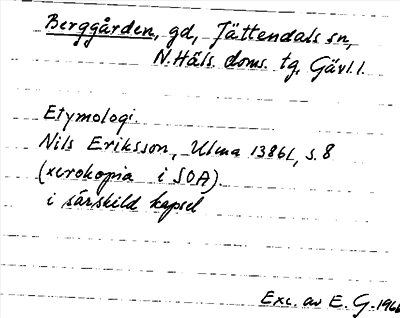 Berggården, gd, Jättendals sn,
N. Häls. doms. tg, Gävl. l.
Etymologi.
Nils Eriksson, Ulma 13861, s. 8
(xerokopia i SOA).
i särskild kapsel
Exc. av E. G.